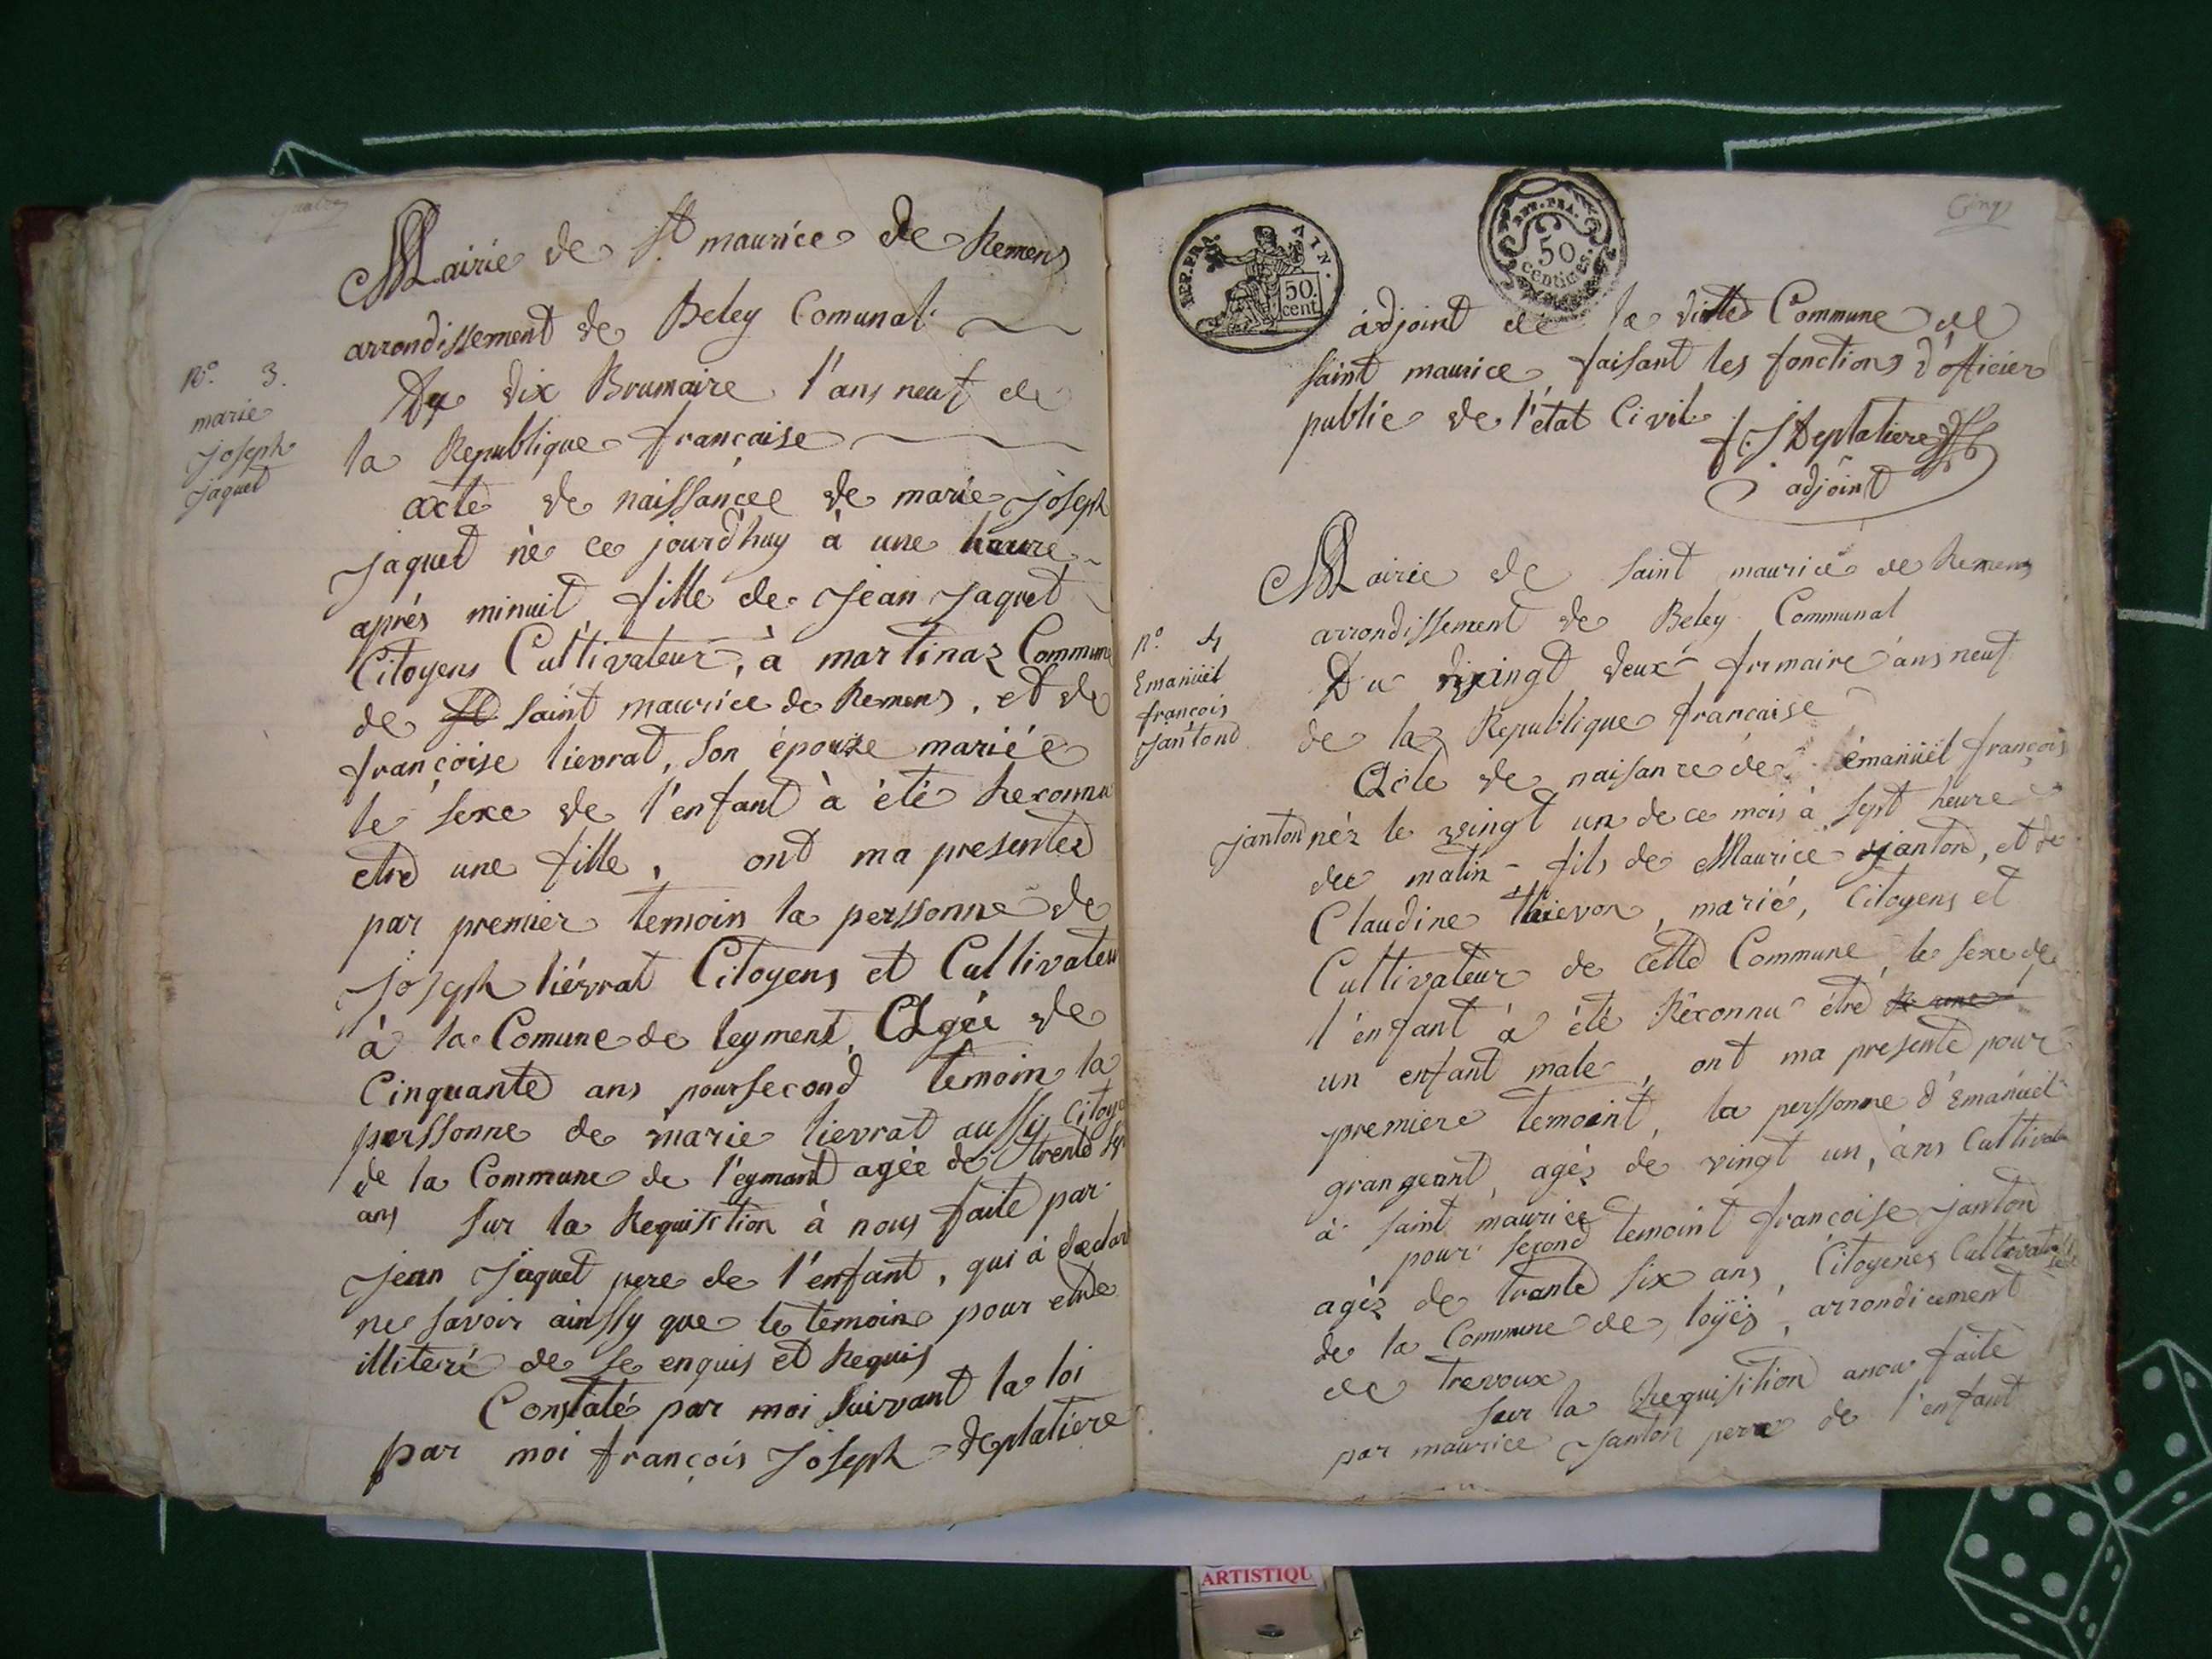 quatre
Mairie de St maurice de Remens
arrondissement de Beley Comunal
Du dix Brumaire l'ans neuf de
la Republique française
N° 3.
marie
joseph
jaquet
acte de naissancee de marie joseph
jaquet né ce jourd'huy à une heure
aprés minuit fille de jean jaquet
Citoyens Cultivateur, à martinaz Commune
de saint maurice de Remens, et de
françoise lievrat, son épouze mariée
le sexe de l'enfant à été Reconnu
etre une fille, ont ma presentez
par premier temoin la perssonne de
joseph liévrat Citoyens et Cultivateu
à la Comune de leyment, Agée de
Cinquante ans pour second temoin la
perssonne de marie lievrat aussy Citoye
de la Commune de l'eymant agée de trente
ans sur la Requisition à nous faite par
jean jaquet pere de l'enfant, qui à declar
ne savoir ainssy que le temoins pour etre
illiteré de se enquis et Requis
Constaté par moi suivant la loi
par moi françois joseph deplatiere
Cinq
REP. FRA. AIN.
50 cent.
REP. FRA.
50
centimes.
adjoint de la ditte Commune de
saint maurice, faisant les fonctions d'officier
public de l'état Civil
f. J Deplatiere
adjoint
Mairie de saint maurice de Remens
arrondissement de Beley Communal
n° 4
Emanüel
françois
janton
Du vingt deux frimaire ans neuf
de la Republique française
Acte de naisance de émanüel françois
janton néz le vingt un de ce mois à sept heure
dee matin - fils de Maurice janton, et de
Claudine thievon, marié, Citoyens et
Cultivateur de cette Commune, le sexe de
l'enfant à été Réconnu étre
un enfant male, ont ma presenté pour
premiere temoint, la perssonne d'Emanuel
grangeant, agés de vingt un, àns Cultivateu
à saint maurice
pour second temoint françoise janton
agéz de trante six ans, Citoyenes Cultivatrice
de la Commune de loÿes, arrondicement
de Trevoux
sur la Requisition anou faite
par maurice janton pere de l'enfant
ARTISTIQU